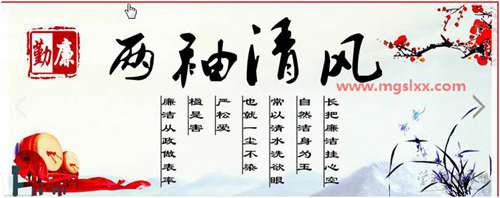 勤廉
两袖清风
www.mgslxx.com
长把廉洁挂心空
自然洁身为玉
常以清水洗欲眼
也就一尘不染
严松爱
植是害
廉洁从政做表率